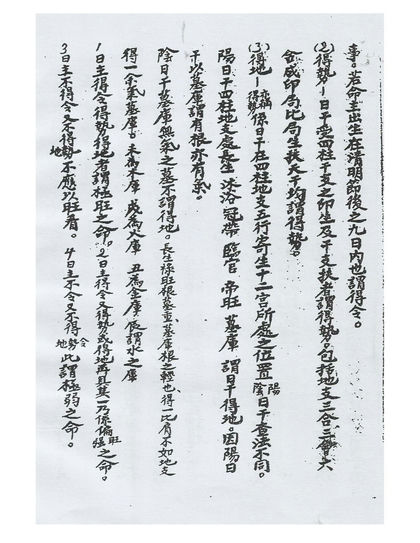 事。若命主出生在清明節後之九日內也謂得令。
(2)得勢—日干受四柱干支之印生及干支扶者謂得勢。包括地支三合、三會、六
合成印局比局生扶天干均謂得勢。
(3)得地—亦稱得勢係日干在四柱地支五行寄生十二宮所處之位置陰陽日干查法不同。
陽日干四柱地支處長生 沐浴 冠帶 臨官 帝旺 墓庫 謂日干得地。因陽日
干以墓庫謂有根亦有氣。
陰日干墓庫無氣之墓不謂得地。長生祿旺根荄重、墓庫根之輕也。得一比肩不如地支
得一余氣墓庫。未為木庫 戌為火庫 丑為金庫 辰謂水之庫
1日主得令得勢得地者謂極旺之命。2日主得令又得勢或得地再且其一乃係偏旺強之命。
3日主不得令又不得勢地不應以旺看。4日主不令又不得勢地令此謂極弱之命。